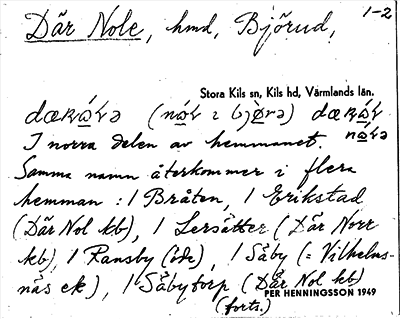 Där Nole, hmd, Björud, 1-2
Stora Kils sn, Kils hd, Värmlands län.
I norra delen av hemmanet.
Samma namn återkommer i flera
hemman : 1 Bråten, 1 Erikstad
(Där Nol kb), 1 Lersätter (Där Norr
kb), 1 Ransby (öde), 1 Såby (= Vilhelms-
näs ek), 1 Såbytorp (Där Nol kb)
PER HENNINGSSON 1949
(forts.)